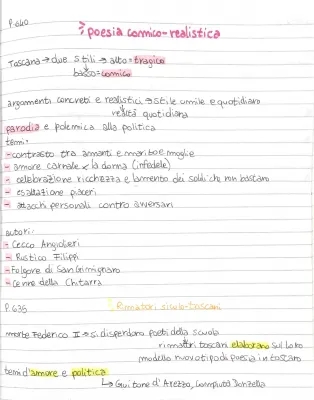 P. 640
poesia comico-realistica
Toscana → due stili → alto = tragico
basso = comico
argomenti concreti e realistici → stile umile e quotidiano
realtà quotidiana
parodia e polemica alla politica
temi:
- contrasto tra amanti e marito e moglie
- amore carnale → la donna (infedele)
- celebrazione ricchezza e lamento dei soldi che non bastano
- esaltazione piaceri
- attacchi personali contro avversari
autori:
- Cecco Angiolieri
- Rustico Filippi
- Folgore di San Gimignano
- Cenne della Chitarra
P. 635
Rimatori siculo-toscani
morte Federico II → si disperdono poeti della scuola
rimatori toscani elaborano sul loro
modello nuovo tipo di poesia in toscano
temi d'amore e politica
↳ Guittone d'Arezzo, Compiuta Donzella